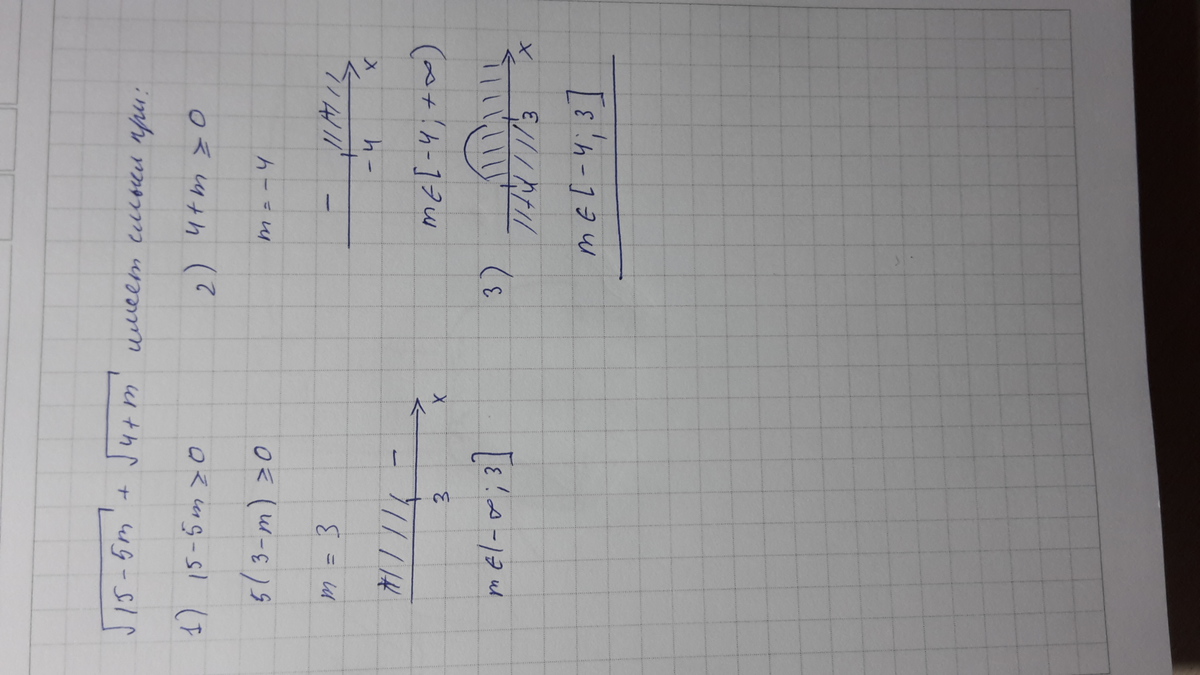 √15-5m + √4+m имеет смысл при:
1) 15-5m ≥ 0
5(3-m) ≥ 0
m = 3
-
3
x
m ∈ (-∞; 3]
2) 4+m ≥ 0
m = -4
-
+
-4
x
m ∈ [-4; +∞)
3)
-4
3
x
m ∈ [-4; 3]